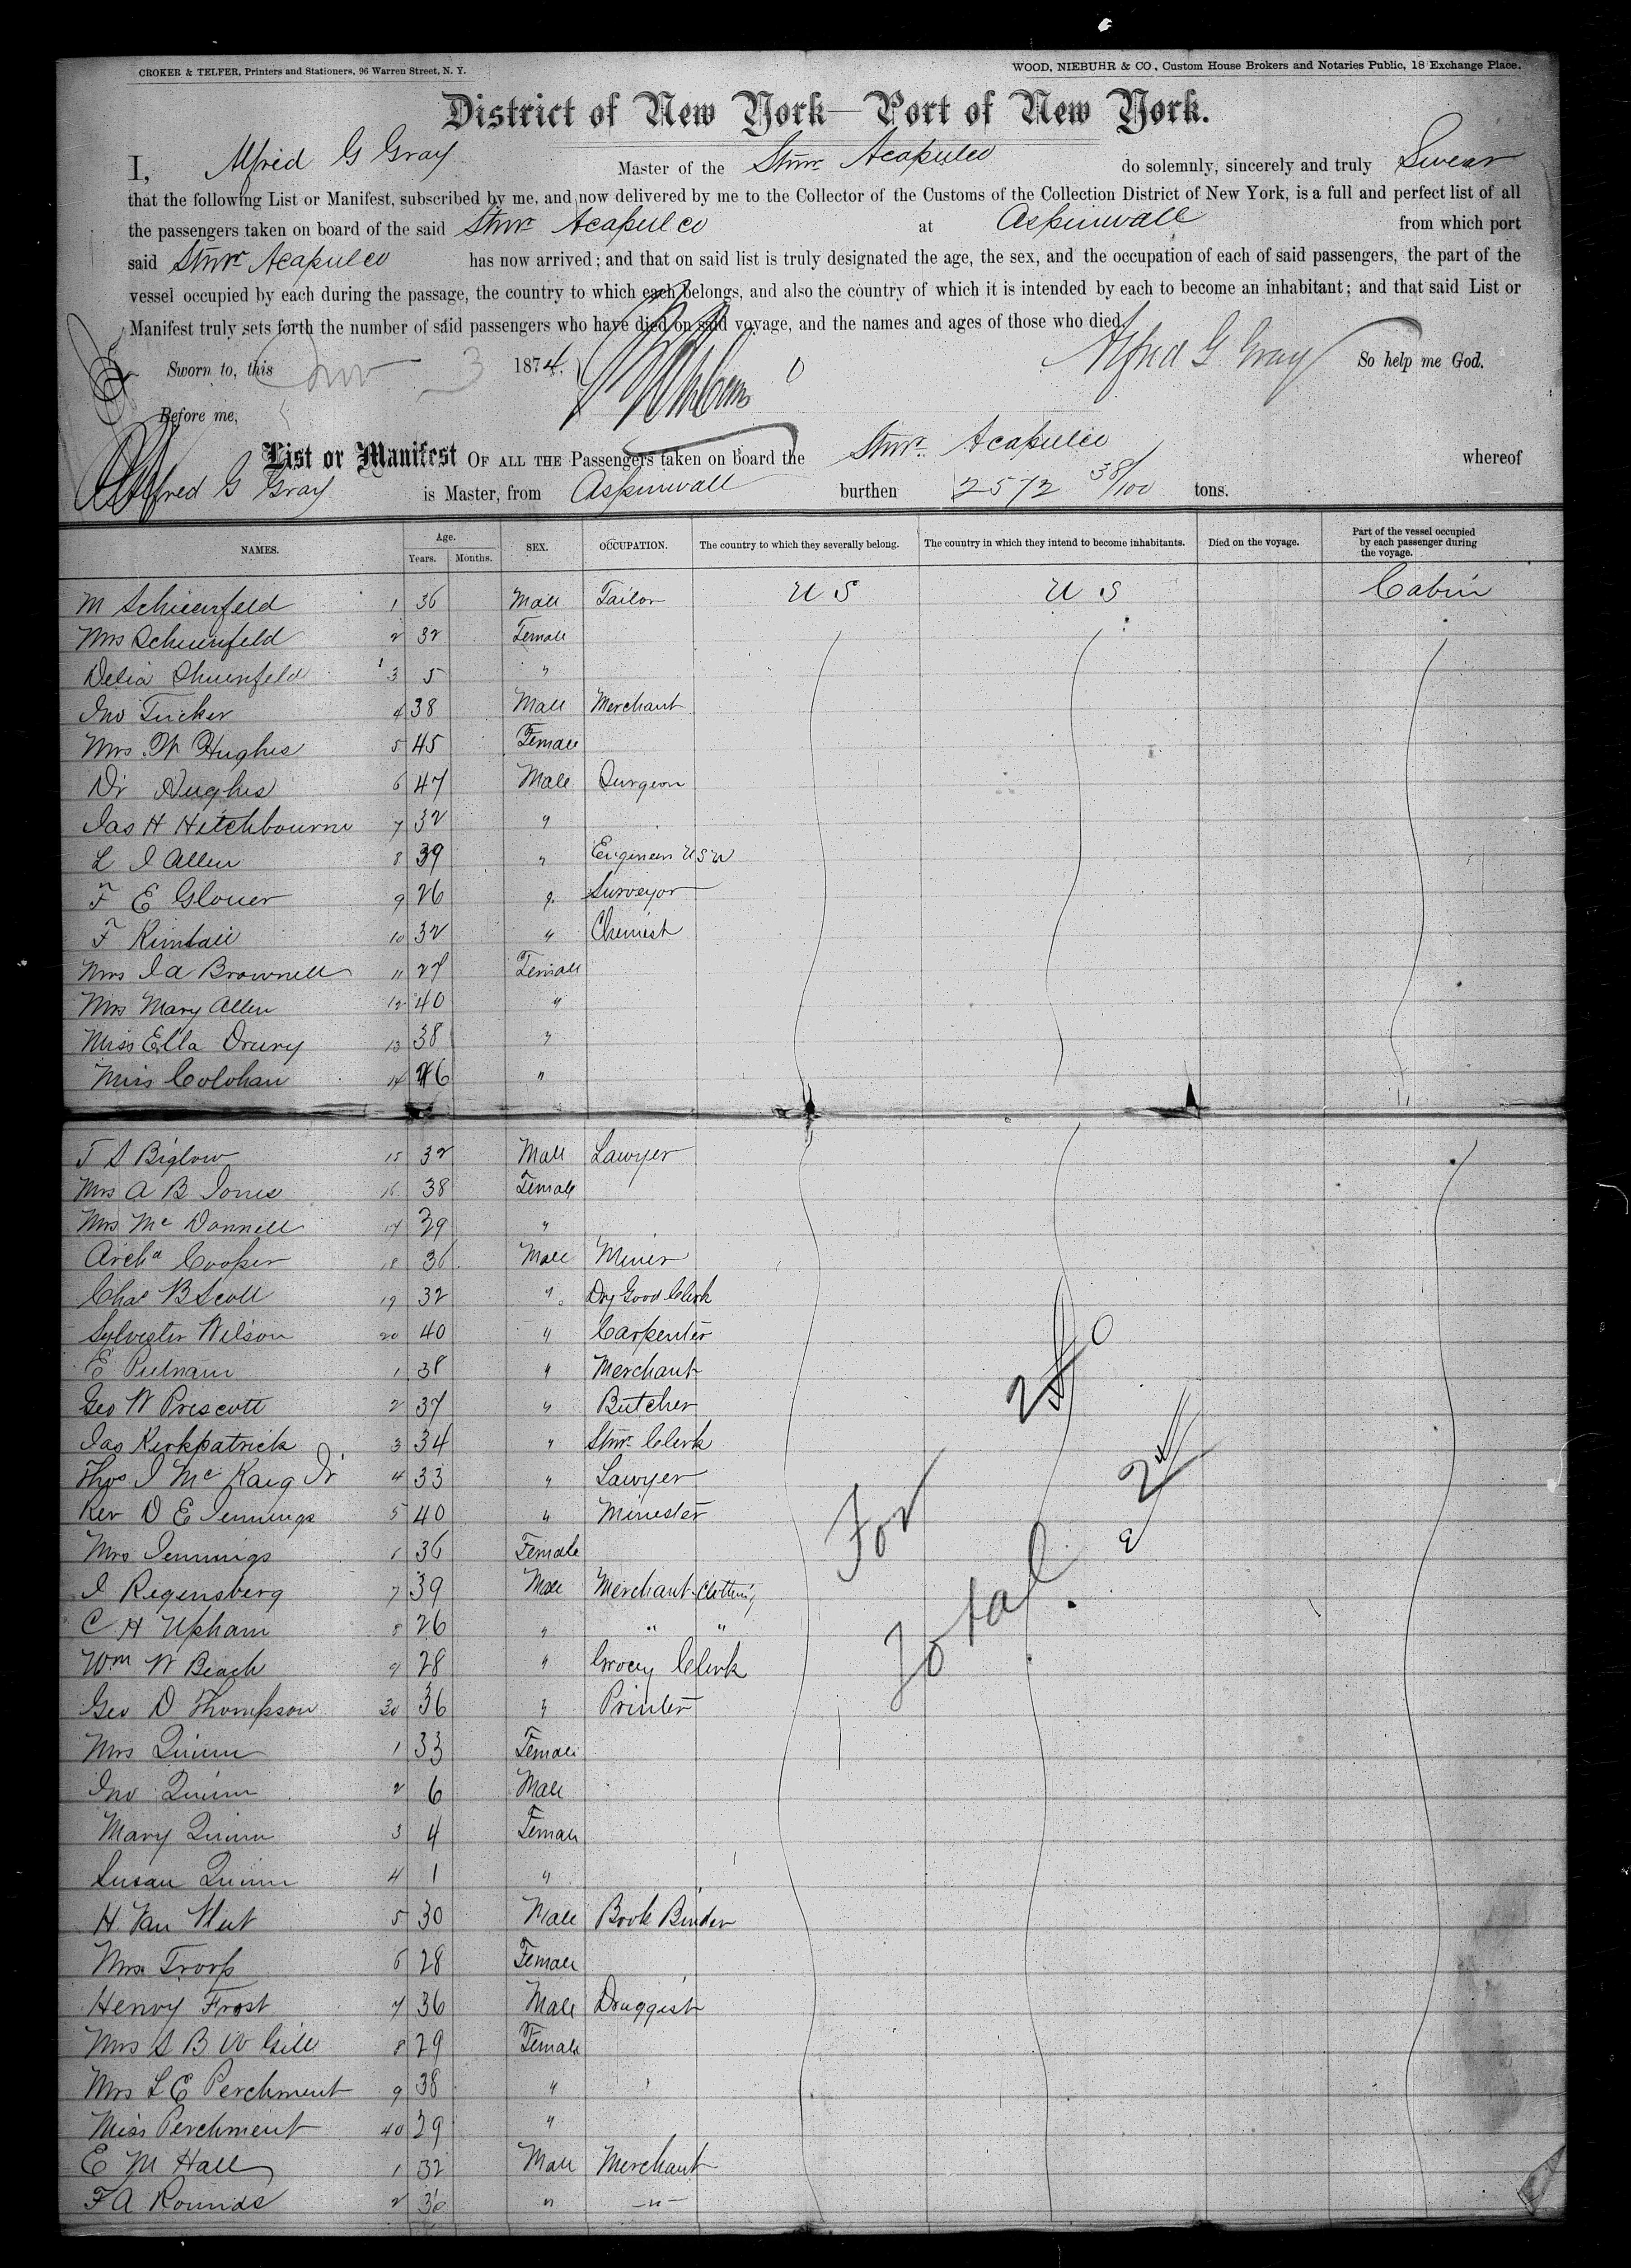 CROKER & TELFER, Printers and Stationers, 96 Warren Street, N. Y. WOOD, NIEBUHR & CO., Custom House Brokers and Notaries Public, 18 Exchange Place.
District of New York—Port of New York.
I, Alfred G Gray Master of the Stmr Acapulco do solemnly, sincerely and truly Swear
that the following List or Manifest, subscribed by me, and now delivered by me to the Collector of the Customs of the Collection District of New York, is a full and perfect list of all
the passengers taken on board of the said Stmr Acapulco at Aspinwall from which port
said Stmr Acapulco has now arrived; and that on said list is truly designated the age, the sex, and the occupation of each of said passengers, the part of the
vessel occupied by each during the passage, the country to which each belongs, and also the country of which it is intended by each to become an inhabitant; and that said List or
Manifest truly sets forth the number of said passengers who have died on said voyage, and the names and ages of those who died.
Sworn to, this Nov 3 1874. Alfred G Gray So help me God.
Before me,
List or Manifest OF ALL THE Passengers taken on board the Stmr. Acapulco whereof
Alfred G Gray is Master, from Aspinwall burthen 2572 38/100 tons.
NAMES. Age. Years. Months. SEX. OCCUPATION. The country to which they severally belong. The country in which they intend to become inhabitants. Died on the voyage. Part of the vessel occupied by each passenger during the voyage.
M Schienfeld 1 36 Male Tailor U S U S Cabin
Mrs Schienfeld 2 32 Female
Delia Shuenfeld 3 5 "
Jno Tucker 4 38 Male Merchant
Mrs W Hughes 5 45 Female
Dr Hughes 6 47 Male Surgeon
Jas H Hitchbourne 7 32 "
L J Allen 8 39 " Engineer U S N
F E Glover 9 26 " Surveyor
F Kimball 10 32 " Chemist
Mrs J A Brownell 11 27 Female
Mrs Mary Allen 12 40 "
Miss Ella Drury 13 38 "
Miss Colohan 14 46 "
T S Biglow 15 32 Male Lawyer
Mrs A B Jones 16 38 Female
Mrs Mc Donnell 17 39 "
Archd Cooper 18 36 Male Miner
Chas B Scott 19 32 " Dry Good Clerk
Sylvester Wilson 20 40 " Carpenter
E Putnam 1 38 " Merchant
Geo W Prescott 2 37 " Butcher
Jas Kirkpatrick 3 34 " Stmr Clerk
Thos J Mc Kaig Jr 4 33 " Lawyer
Rev D E Jennings 5 40 " Minester
Mrs Jennings 6 36 Female
J Regensberg 7 39 Male Merchant Clothing
C H Upham 8 26 " " "
Wm W Beach 9 28 " Grocey Clerk
Geo D Thompson 30 36 " Printer
Mrs Quinn 1 33 Female
Jno Quinn 2 6 Male
Mary Quinn 3 4 Female
Susan Quinn 4 1 "
H Van Vleet 5 30 Male Book Binder
Mrs Troop 6 28 Female
Henry Frost 7 36 Male Druggist
Mrs S B W Gill 8 29 Female
Mrs L E Perchment 9 38 "
Miss Perchment 40 29 "
E M Hall 1 32 Male Merchant
F A Rounds 2 36 " "
For
Total